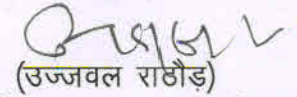 (उज्जवल राठौड़)